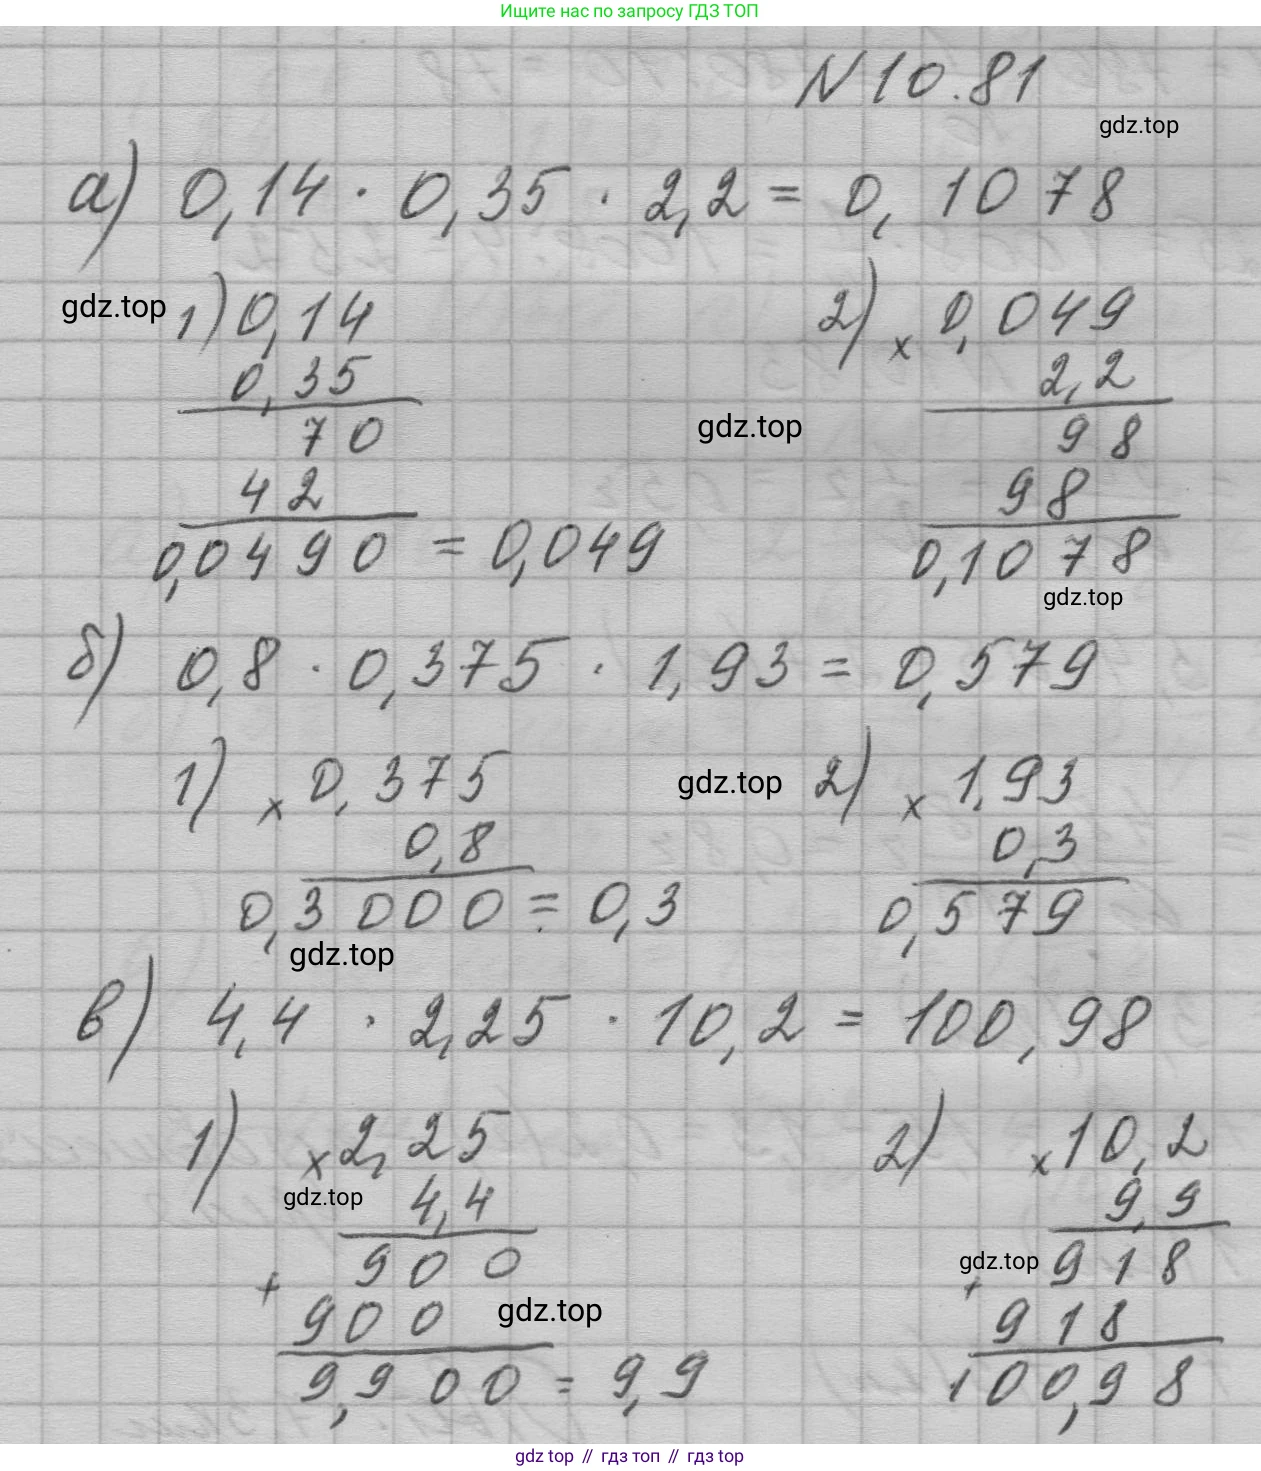 Ищите нас по запросу ГДЗ ТОП
N 10.81
gdz.top
а) 0,14 · 0,35 · 2,2 = 0,1078
gdz.top
1) 0,14
0,35
70
42
0,0490 = 0,049
2) × 0,049
2,2
gdz.top
98
98
0,1078
gdz.top
б) 0,8 · 0,375 · 1,93 = 0,579
1) × 0,375
0,8
0,3000 = 0,3
gdz.top
gdz.top
2) × 1,93
0,3
0,579
в) 4,4 · 2,25 · 10,2 = 100,98
1) × 2,25
gdz.top
4,4
900
+
900
gdz.top
9,900 = 9,9
2) × 10,2
9,9
gdz.top
918
+
918
100,98
gdz.top // гдз топ // gdz.top